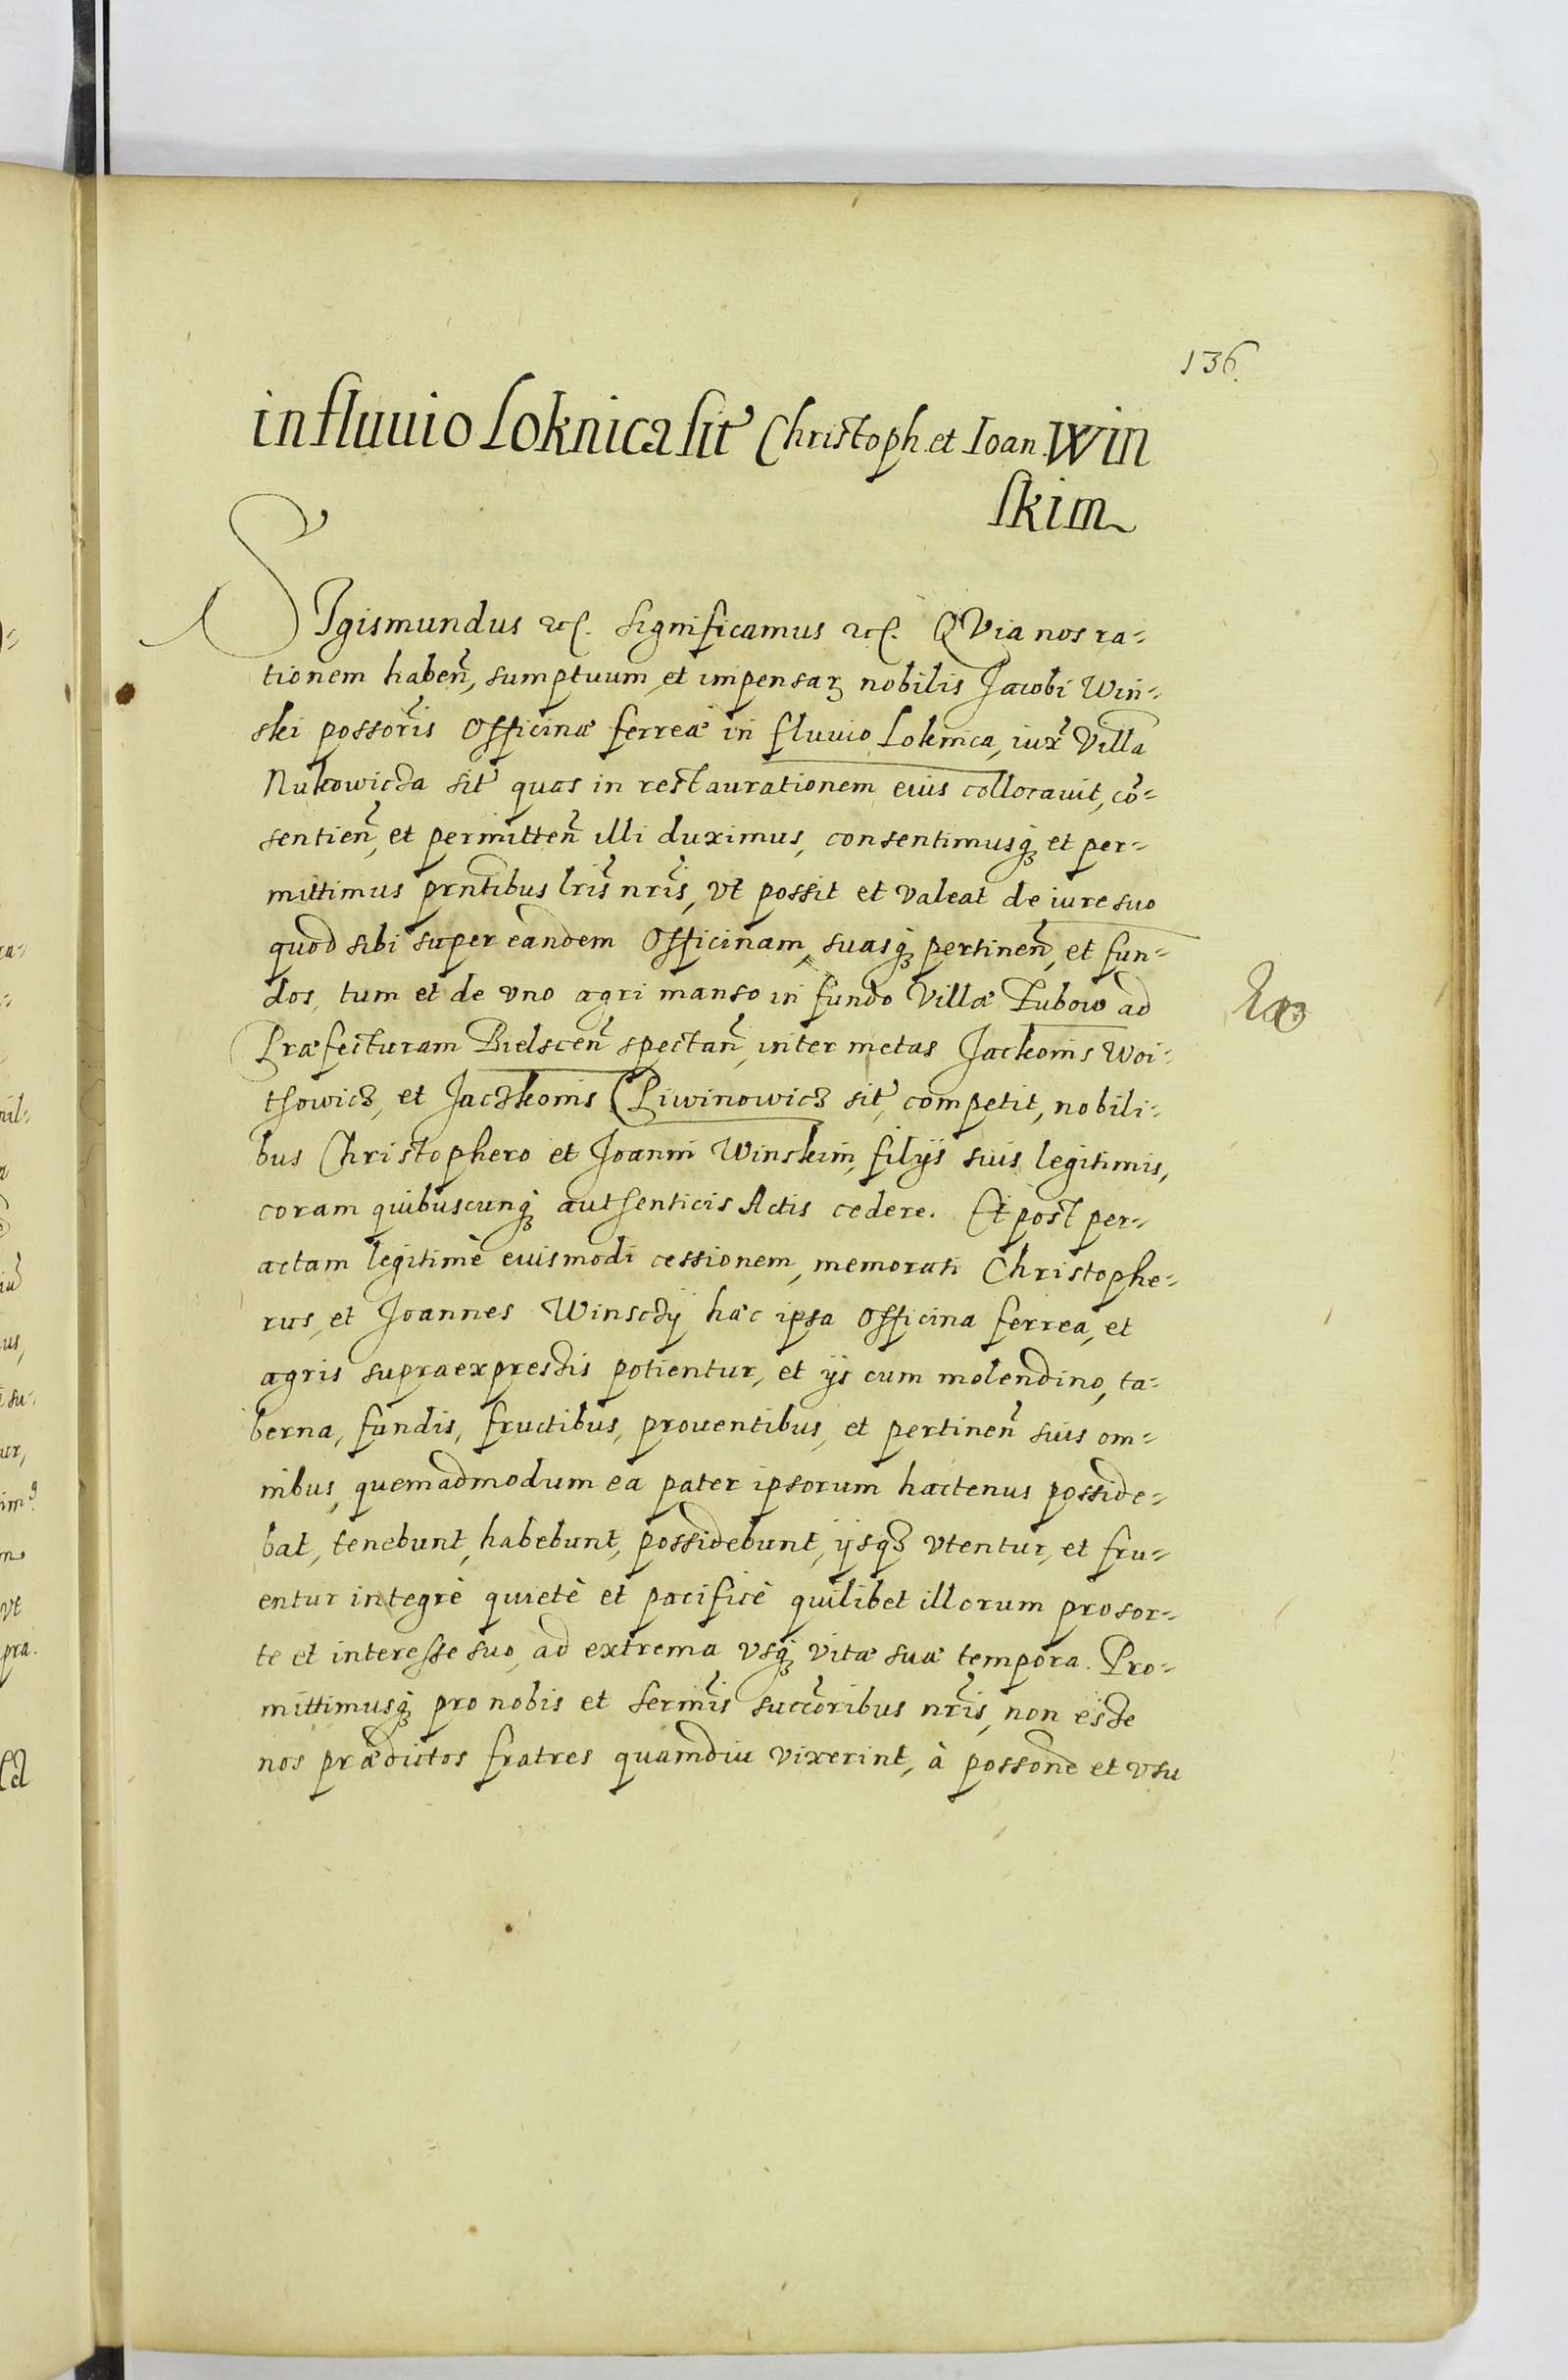 136.
in fluuio Loknica sit Christoph. et Ioan. Win
skim
SIgismundus etc. Significamus etc. QVia nos ra-
tionem haben, sumptuum et impensarꝫ nobilis Jacobi Win-
ski possoris Officinæ ferreæ in fluuio Loknica, iux Villa
Nukowicza sit quas in restaurationem eius collocauit, cō-
sentien, et permitten illi duximus, consentimusqꝫ et per-
mittimus prntibus lris nris, vt possit et valeat de iure suo
quod sibi super eandem Officinam, suasqꝫ pertinen, et fun-
dos, tum et de vno agri manso in fundo Villæ Lubow ad
Præfecturam Bielscen spectan, inter metas Jackonis Woi-
thowicz, et Jaczkonis Piwinowicz sit, competit, nobili-
bus Christophero et Joanni Winskim, filijs suis legitimis,
coram quibuscunqꝫ authenticis Actis cedere. Et post per-
actam legitimè eiusmodi cessionem, memorati Christophe-
rus, et Joannes Winsczij hac ipsa Officina ferrea, et
agris supraexpressis potientur, et ijs cum molendino, ta-
berna, fundis, fructibus, prouentibus, et pertinen suis om-
nibus, quemadmodum ea pater ipsorum hactenus posside-
bat, tenebunt, habebunt, possidebunt, ijsqꝫ vtentur, et fru-
entur integrè quietè et pacificè quilibet illorum pro sor-
te et interesse suo, ad extrema vsqꝫ vitæ suæ tempora. Pro-
mittimusqꝫ pro nobis et Sermis succoribus nris, non esse
nos prædictos fratres quamdiu vixerint, à possone et vsu